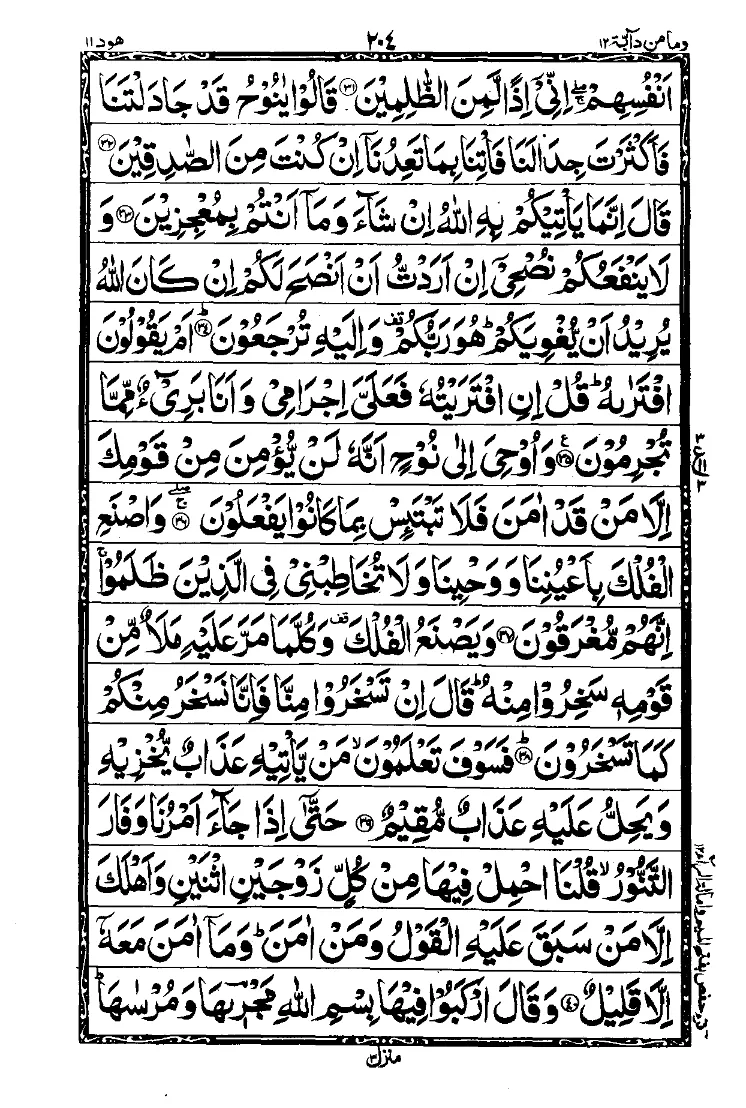 وما من دآبة ١٢
٢٠٤
هود ١١
اَنْفُسِهِمْ ۚۖ اِنِّيْۤ اِذًا لَّمِنَ الظّٰلِمِيْنَ ﴿۳۱﴾ قَالُوْا يٰنُوْحُ قَدْ جَادَلْتَنَا
فَاَكْثَرْتَ جِدَالَنَا فَاْتِنَا بِمَا تَعِدُنَاۤ اِنْ كُنْتَ مِنَ الصّٰدِقِيْنَ ﴿۳۲﴾
قَالَ اِنَّمَا يَاْتِيْكُمْ بِهِ اللّٰهُ اِنْ شَآءَ وَمَاۤ اَنْتُمْ بِمُعْجِزِيْنَ ﴿۳۳﴾ وَ
لَا يَنْفَعُكُمْ نُصْحِيْۤ اِنْ اَرَدْتُّ اَنْ اَنْصَحَ لَكُمْ اِنْ كَانَ اللّٰهُ
يُرِيْدُ اَنْ يُّغْوِيَكُمْ ؕ هُوَ رَبُّكُمْ ۫ وَاِلَيْهِ تُرْجَعُوْنَ ﴿ؕ۳۴﴾ اَمْ يَقُوْلُوْنَ
افْتَرٰىهُ ؕ قُلْ اِنِ افْتَرَيْتُهٗ فَعَلَيَّ اِجْرَامِيْ وَاَنَا بَرِيْٓءٌ مِّمَّا
تُجْرِمُوْنَ ﴿۳۵﴾ ع وَاُوْحِيَ اِلٰى نُوْحٍ اَنَّهٗ لَنْ يُّؤْمِنَ مِنْ قَوْمِكَ
اِلَّا مَنْ قَدْ اٰمَنَ فَلَا تَبْتَىِٕسْ بِمَا كَانُوْا يَفْعَلُوْنَ ﴿ۚۖ۳۶﴾ وَاصْنَعِ
الْفُلْكَ بِاَعْيُنِنَا وَوَحْيِنَا وَلَا تُخَاطِبْنِيْ فِي الَّذِيْنَ ظَلَمُوْا ۚ
اِنَّهُمْ مُّغْرَقُوْنَ ﴿۳۷﴾ وَيَصْنَعُ الْفُلْكَ ۫ وَكُلَّمَا مَرَّ عَلَيْهِ مَلَاٌ مِّنْ
قَوْمِهٖ سَخِرُوْا مِنْهُ ؕ قَالَ اِنْ تَسْخَرُوْا مِنَّا فَاِنَّا نَسْخَرُ مِنْكُمْ
كَمَا تَسْخَرُوْنَ ﴿ؕ۳۸﴾ فَسَوْفَ تَعْلَمُوْنَ ۙ مَنْ يَّاْتِيْهِ عَذَابٌ يُّخْزِيْهِ
وَيَحِلُّ عَلَيْهِ عَذَابٌ مُّقِيْمٌ ﴿۳۹﴾ حَتّٰۤى اِذَا جَآءَ اَمْرُنَا وَفَارَ
التَّنُّوْرُ ۙ قُلْنَا احْمِلْ فِيْهَا مِنْ كُلٍّ زَوْجَيْنِ اثْنَيْنِ وَاَهْلَكَ
اِلَّا مَنْ سَبَقَ عَلَيْهِ الْقَوْلُ وَمَنْ اٰمَنَ ؕ وَمَاۤ اٰمَنَ مَعَهٗۤ
اِلَّا قَلِيْلٌ ﴿۴۰﴾ وَقَالَ ارْكَبُوْا فِيْهَا بِسْمِ اللّٰهِ مَجْرٖىهَا وَمُرْسٰىهَا ؕ
منزل ٣